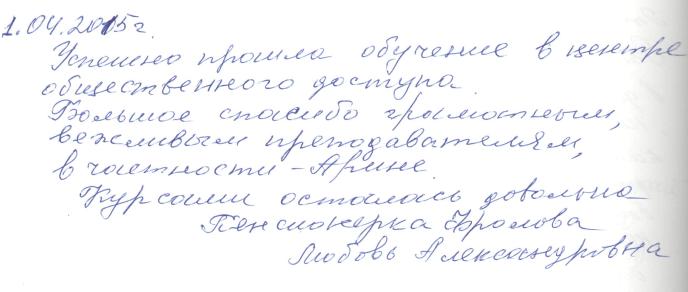 1.04.2015г.
Успешно прошла обучение в центре
общественного доступа.
Большое спасибо грамотным,
вежливым преподавателям,
в частности - Арине.
Курсами осталась довольна
Пенсионерка Фролова
Любовь Александровна